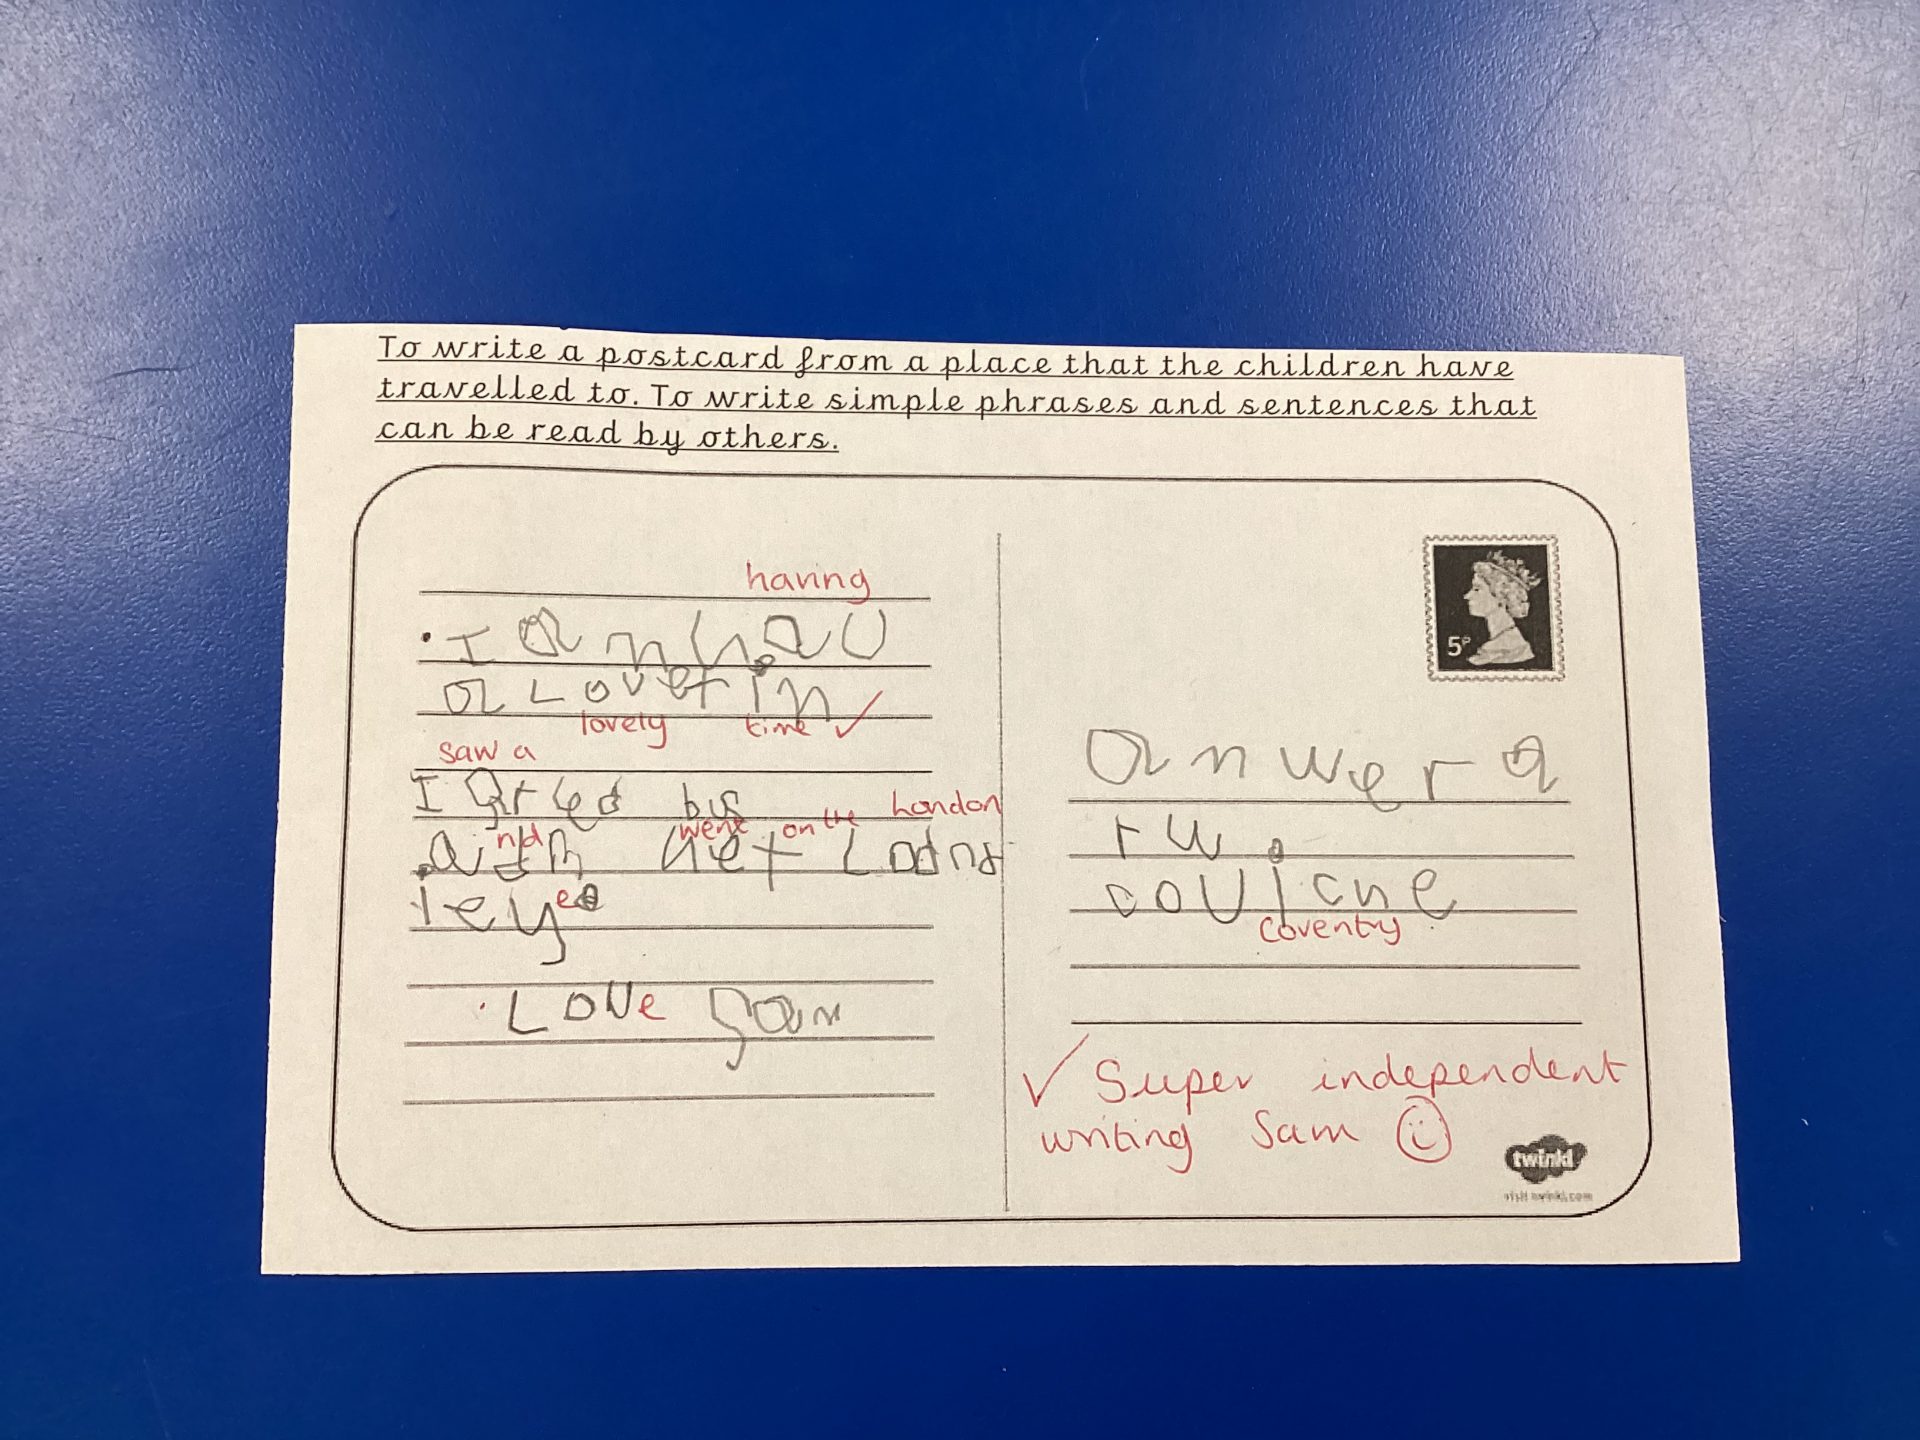 To write a postcard from a place that the children have
travelled to. To write simple phrases and sentences that
can be read by others.
having
I am hav
a Lovet in
lovely time ✓
saw a
I bus
nd went on the London
ey e
Love Sam
5P
anwera
rw
covicne
Coventry
✓ Super independent
writing Sam
twinkl
visit twinkl.com